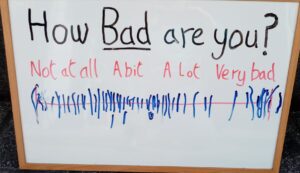 How Bad are you?
Not at all A bit A Lot Very bad